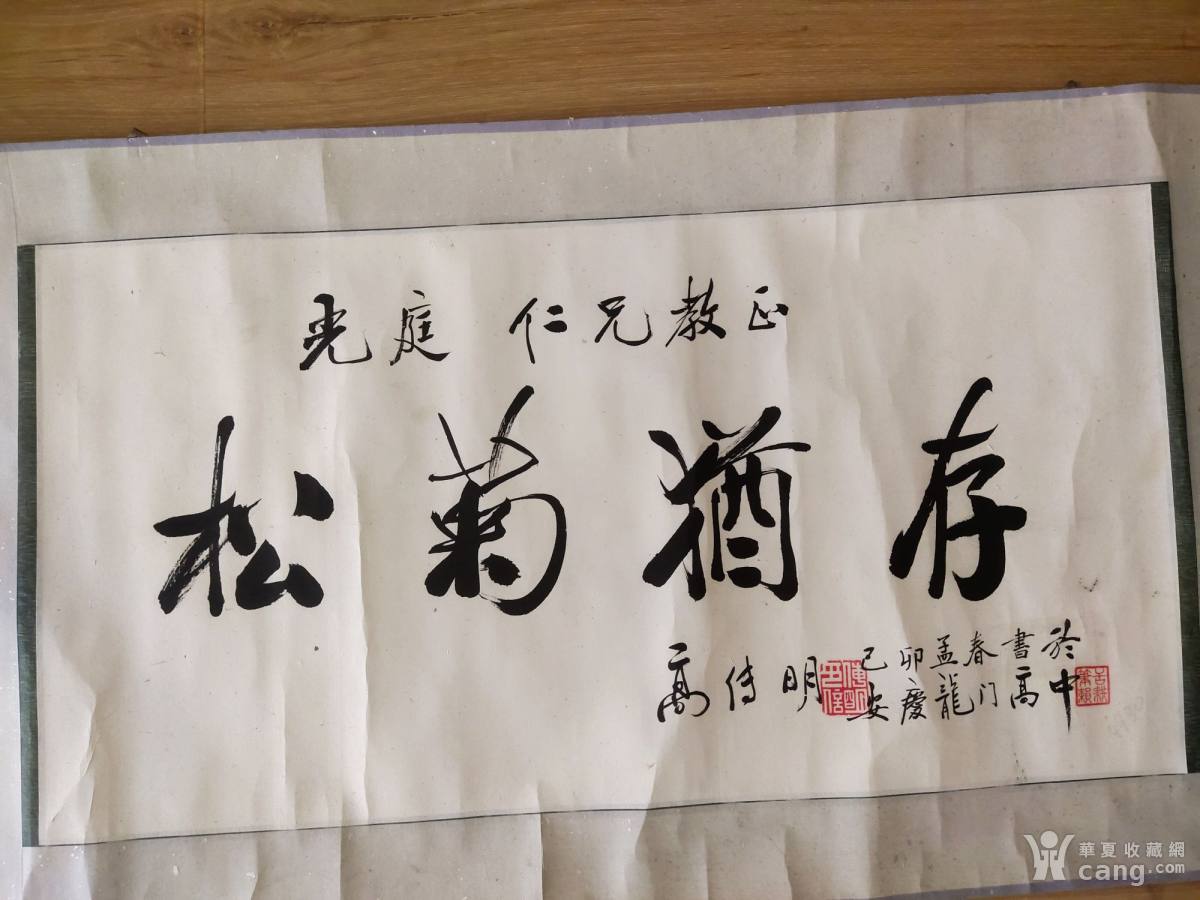 光庭 仁兄教正
松菊猶存
高传明
己卯孟春書於
安慶龍门高中
華夏收藏網
cang.com